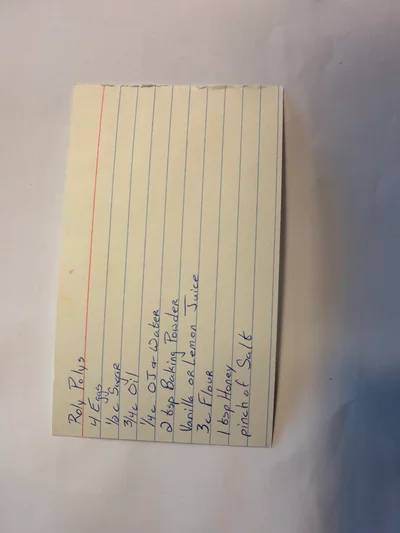 Roly Polys
4 Eggs
1/2 c Sugar
3/4 c Oil
1/4 c OJ or Water
2 tsp Baking Powder
Vanilla or Lemon Juice
3 c Flour
1 tsp Honey
pinch of Salt